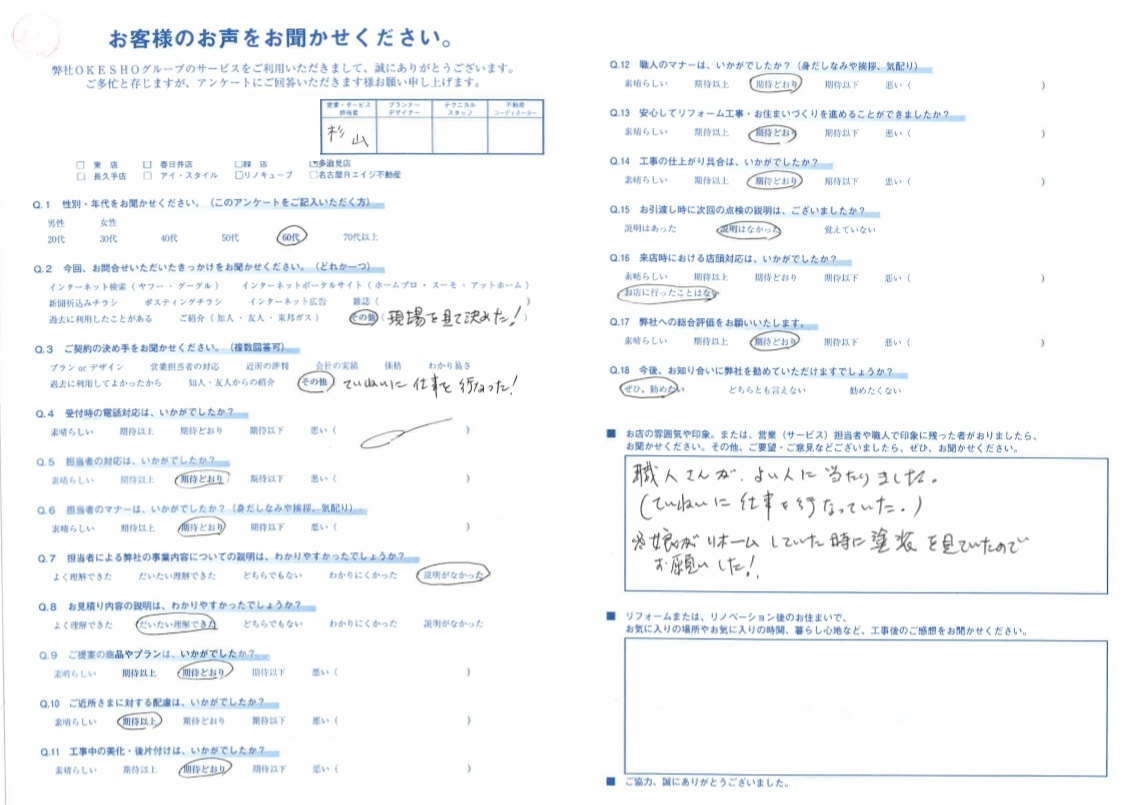 お客様のお声をお聞かせください。
弊社OKESHOグループのサービスをご利用いただきまして、誠にありがとうございます。
ご多忙と存じますが、アンケートにご回答いただきます様お願い申し上げます。
営業・サービス担当者 プランナーデザイナー テクニカルスタッフ 不動産コーディネーター
杉山
□ 東 店 □ 春日井店 □緑 店 ☑多治見店
□ 長久手店 □ アイ・スタイル □リノキューブ □名古屋Rエイジ不動産
Q.1 性別・年代をお聞かせください。（このアンケートをご記入いただく方）
男性 女性
20代 30代 40代 50代 60代 70代以上
Q.2 今回、お問合せいただいたきっかけをお聞かせください。（どれか一つ）
インターネット検索（ヤフー・グーグル） インターネットポータルサイト（ホームプロ・スーモ・アットホーム）
新聞折込みチラシ ポスティングチラシ インターネット広告 雑誌（ ）
過去に利用したことがある ご紹介（知人・友人・東邦ガス） その他（現場を見て決めた！）
Q.3 ご契約の決め手をお聞かせください。（複数回答可）
プランorデザイン 営業担当者の対応 近所の評判 会社の実績 価格 わかり易さ
過去に利用してよかったから 知人・友人からの紹介 その他（ていねいに仕事を行なった！
Q.4 受付時の電話対応は、いかがでしたか？
素晴らしい 期待以上 期待どおり 期待以下 悪い（ ）
Q.5 担当者の対応は、いかがでしたか？
素晴らしい 期待以上 期待どおり 期待以下 悪い（ ）
Q.6 担当者のマナーは、いかがでしたか？（身だしなみや挨拶、気配り）
素晴らしい 期待以上 期待どおり 期待以下 悪い（ ）
Q.7 担当者による弊社の事業内容についての説明は、わかりやすかったでしょうか？
よく理解できた だいたい理解できた どちらでもない わかりにくかった 説明がなかった
Q.8 お見積り内容の説明は、わかりやすかったでしょうか？
よく理解できた だいたい理解できた どちらでもない わかりにくかった 説明がなかった
Q.9 ご提案の商品やプランは、いかがでしたか？
素晴らしい 期待以上 期待どおり 期待以下 悪い（ ）
Q.10 ご近所さまに対する配慮は、いかがでしたか？
素晴らしい 期待以上 期待どおり 期待以下 悪い（ ）
Q.11 工事中の美化・後片付けは、いかがでしたか？
素晴らしい 期待以上 期待どおり 期待以下 悪い（ ）
Q.12 職人のマナーは、いかがでしたか？（身だしなみや挨拶、気配り）
素晴らしい 期待以上 期待どおり 期待以下 悪い（ ）
Q.13 安心してリフォーム工事・お住まいづくりを進めることができましたか？
素晴らしい 期待以上 期待どおり 期待以下 悪い（ ）
Q.14 工事の仕上がり具合は、いかがでしたか？
素晴らしい 期待以上 期待どおり 期待以下 悪い（ ）
Q.15 お引渡し時に次回の点検の説明は、ございましたか？
説明はあった 説明はなかった 覚えていない
Q.16 来店時における店頭対応は、いかがでしたか？
素晴らしい 期待以上 期待どおり 期待以下 悪い（ ）
お店に行ったことはない
Q.17 弊社への総合評価をお願いいたします。
素晴らしい 期待以上 期待どおり 期待以下 悪い（ ）
Q.18 今後、お知り合いに弊社を勧めていただけますでしょうか？
ぜひ、勧めたい どちらとも言えない 勧めたくない
■ お店の雰囲気や印象。または、営業（サービス）担当者や職人で印象に残った者がおりましたら、
お聞かせください。その他、ご要望・ご意見などございましたら、ぜひ、お聞かせください。
職人さんが、よい人に当たりました。
（ていねいに仕事を行なっていた。）
※娘がリホームしていた時に塗装を見ていたので
お願いした！
■ リフォームまたは、リノベーション後のお住まいで、
お気に入りの場所やお気に入りの時間、暮らし心地など、工事後のご感想をお聞かせください。
■ ご協力、誠にありがとうございました。